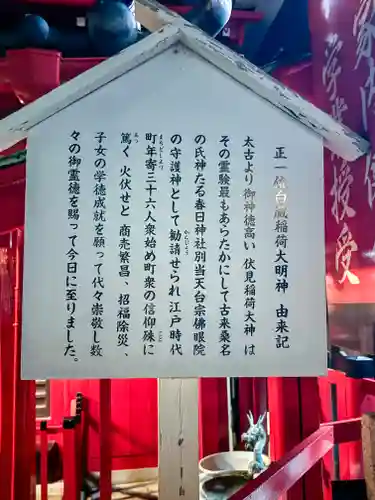 正一位白蔵稲荷大明神　由来記
太古より御神徳高い　伏見稲荷大神　は
その霊験最もあらたかにして古来桑名
の氏神たる春日神社別当天台宗佛眼院
の守護神として勧請せられ江戸時代
かんじょう
町年寄三十六人衆始め町衆の信仰殊に
まちどしより
篤く　火伏せと　商売繁昌、招福除災、
あつ
子女の学徳成就を願って代々崇敬し数
々の御霊徳を賜って今日に至りました。
家内
学業
授受